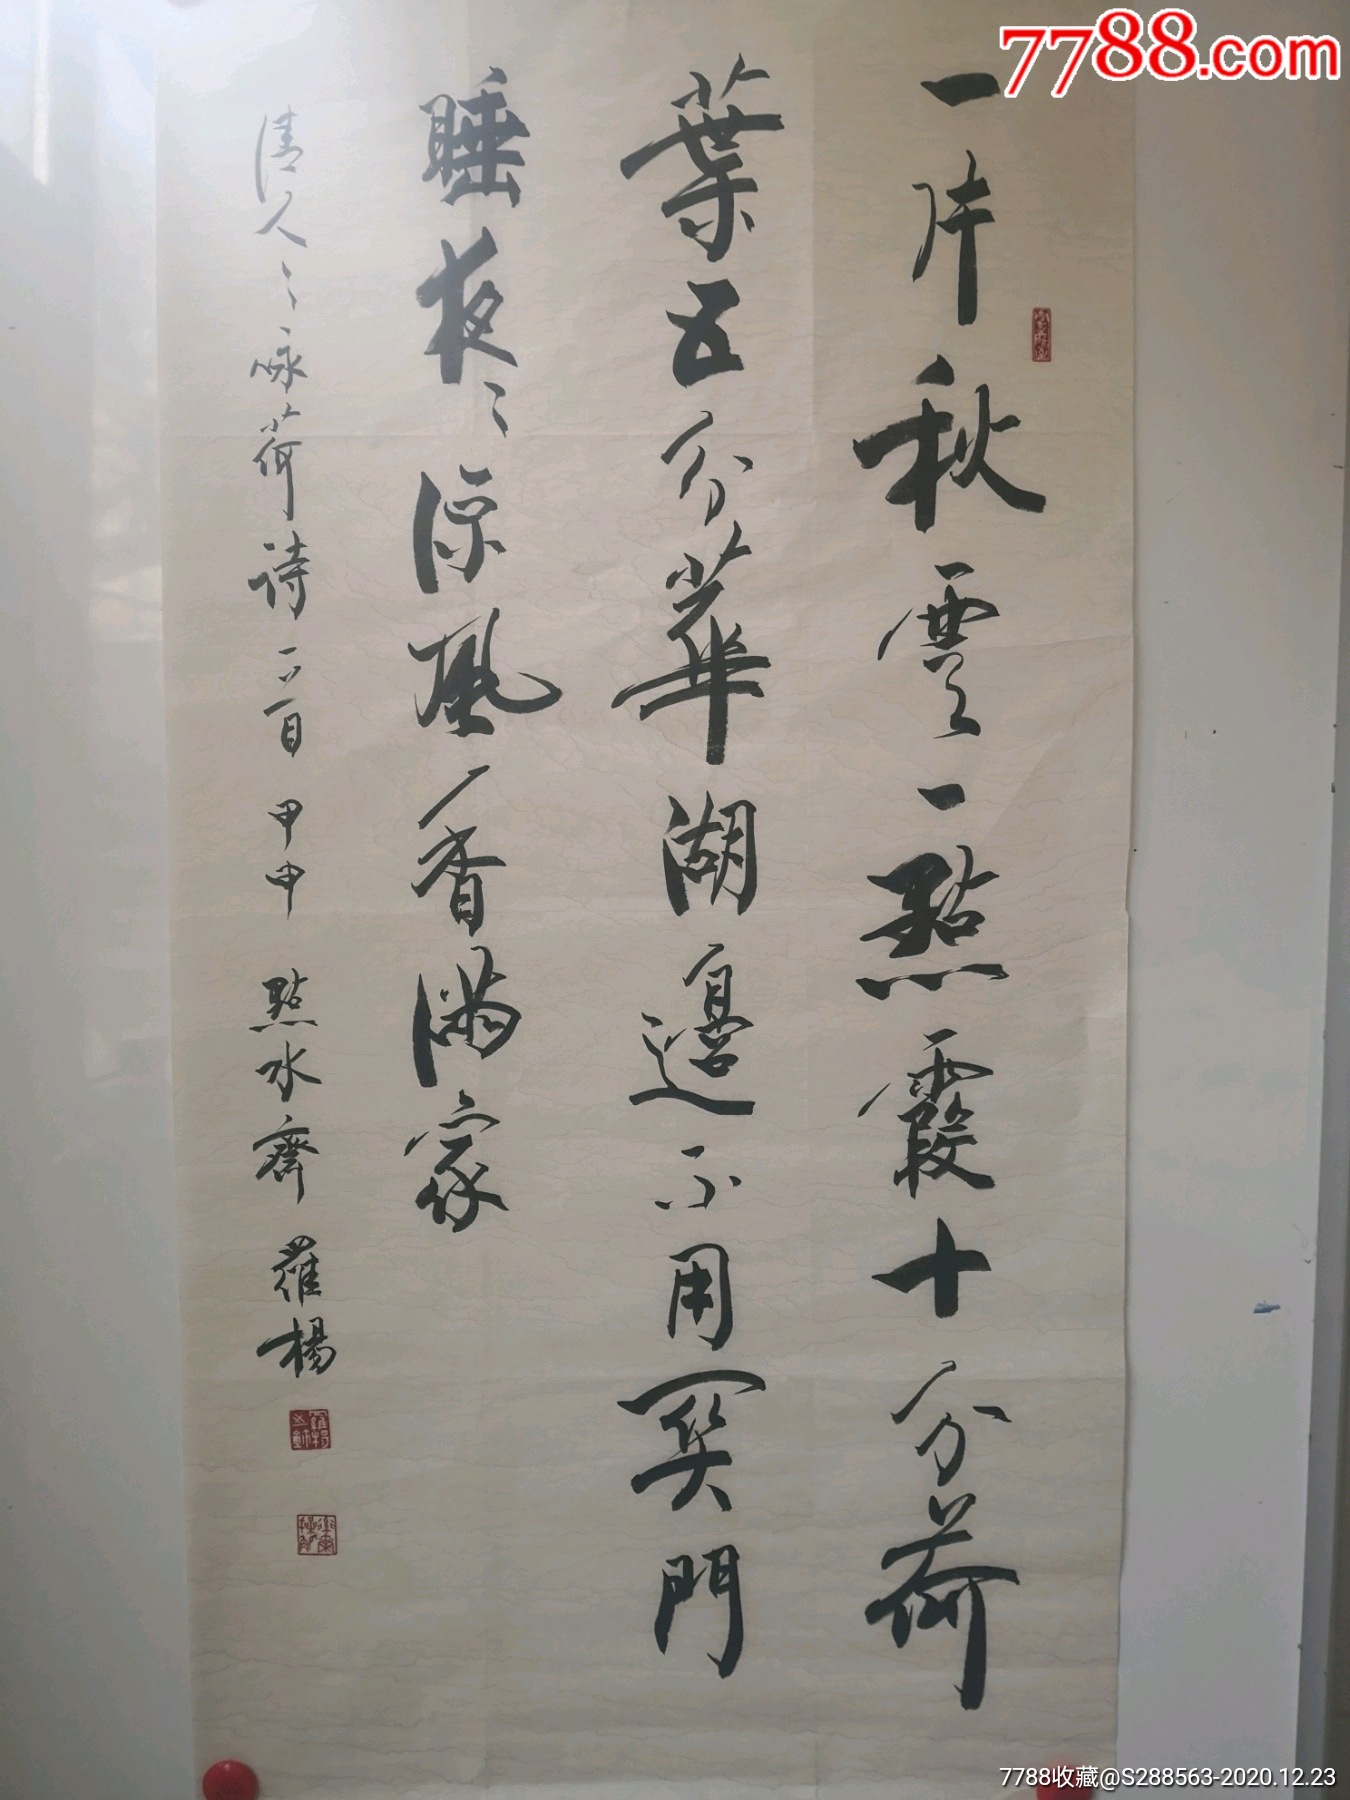 7788.com
一片秋雲一點霞十分荷
葉五分華湖邊不用關門
睡夜〻涼風香滿家
清人之咏荷詩一首 甲申 點水齋 羅楊
7788收藏@S288563-2020.12.23